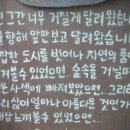 그간 너무 거칠게 달려왔습니
향해 앞만 보고 달려왔습니
잡한 도시를 벗어나 자연의 품
겨볼수 있었으면 숲속을 거닐며
운 사색에 빠져봤으면... 그리
리 삶이 얼마나 아름다운 것인가
새삼 느껴볼수 있었으면...